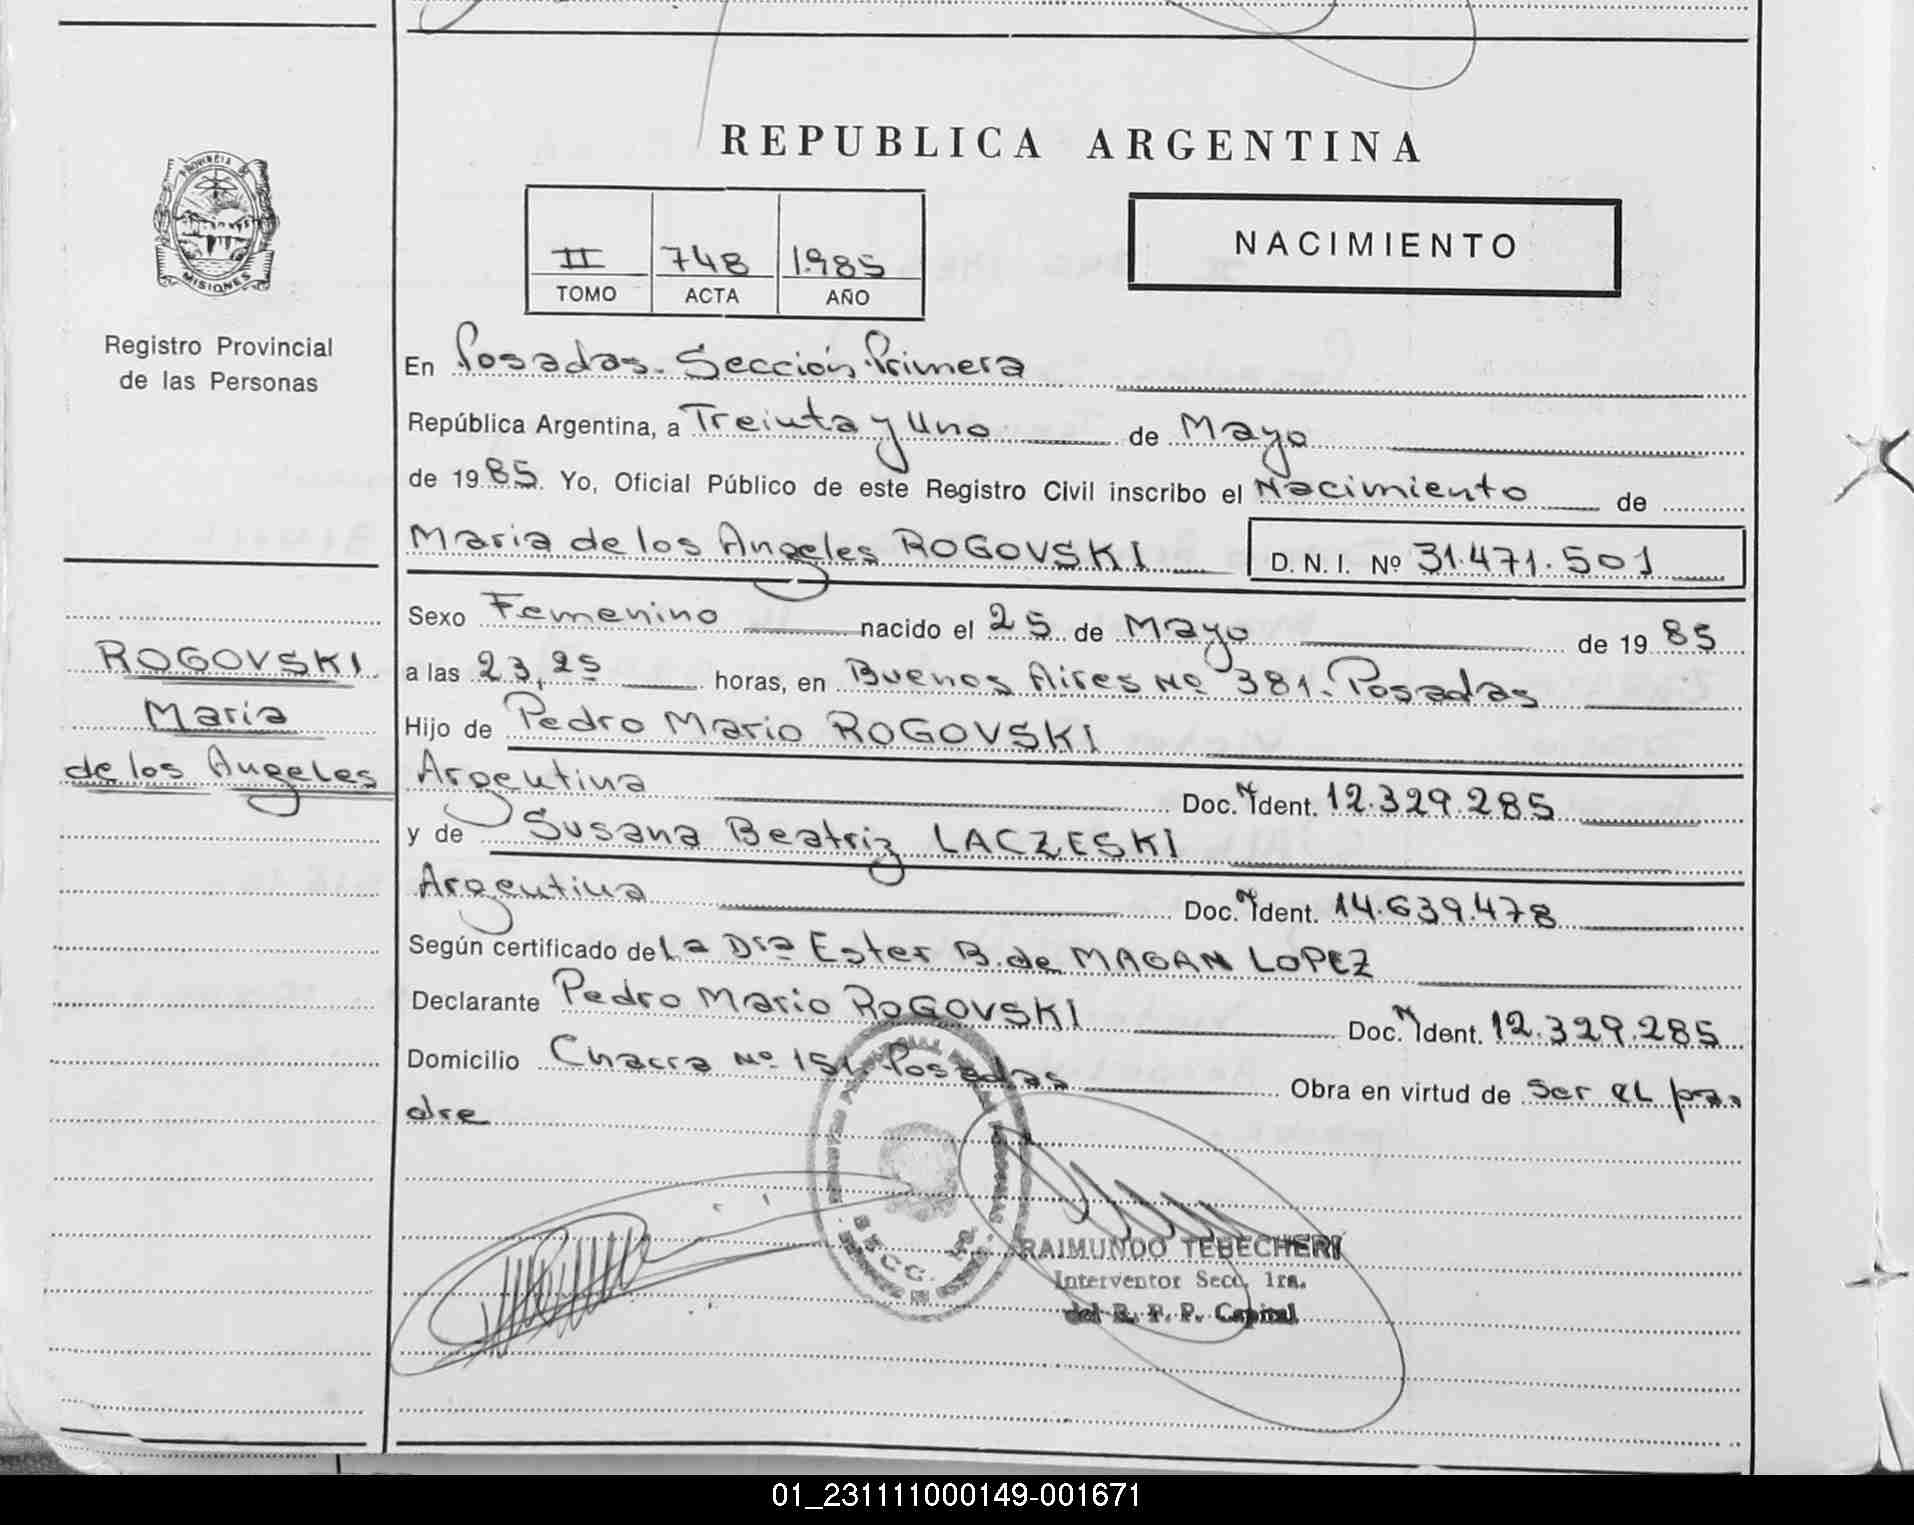 REPUBLICA ARGENTINA
PROVINCIA DE
MISIONES
Registro Provincial
de las Personas
II 748 1.985
TOMO ACTA AÑO
NACIMIENTO
En Posadas. Sección Primera
República Argentina, a Treinta y Uno de Mayo
de 1985. Yo, Oficial Público de este Registro Civil inscribo el Nacimiento de
Maria de los Angeles ROGOVSKI D. N. I. Nº 31.471.501
Sexo Femenino nacido el 25 de Mayo de 1985
ROGOVSKI
Maria
de los Angeles
a las 23,25 horas, en Buenos Aires Nº 381. Posadas
Hijo de Pedro Mario ROGOVSKI
Argentina Doc. N Ident. 12.329.285
y de Susana Beatriz LACZESKI
Argentina Doc. N Ident. 14.639.478
Según certificado de La Dra Ester B. de MAGAN LOPEZ
Declarante Pedro Mario ROGOVSKI Doc. N Ident. 12.329.285
Domicilio Chacra Nº 151. Posadas Obra en virtud de Ser el pa
dre
SECC.
RAIMUNDO TEBECHERI
Interventor Secc. 1ra.
del R. P. P. Capital
01_231111000149-001671